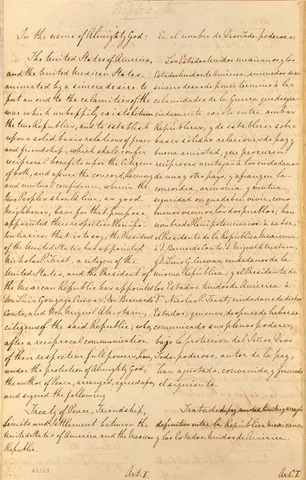 In the name of Almighty God:
The United States of America,
and the United Mexican States,
animated by a sincere desire to
put an end to the calamities of the
war which unhappily exists between
the two Republics, and to establish
upon a solid basis relations of peace
and friendship, which shall confer
reciprocal benefits upon the Citizens
of both, and assure the concord, harmony
and mutual confidence, wherein the
two Peoples should live, as good
Neighbours, have for that purpose
appointed their respective Plenipo-
tentiaries: that is to say, the President
of the United States has appointed
Nicholas P. Trist, a citizen of the
United States, and the President of
the Mexican Republic has appointed
Don Luis Gonzaga Cuevas, Don Bernardo
Couto, and Don Miguel Atristain,
citizens of the said Republic; who,
after a reciprocal communication
of their respective full powers, have,
under the protection of Almighty God,
the author of Peace, arranged, agreed upon,
and signed the following
Treaty of Peace, Friendship,
Limits and Settlement between the
United States of America and the Mexican
Republic.
Art. I.
En el nombre de Dios Todo poderoso:
Los Estados Unidos mexicanos y los
Estados Unidos de América, animados de un
sincero deseo de poner termino á las
calamidades de la Guerra que desgra-
ciadamente existe entre ambas
Republicas, y de establecer sobre
bases sólidas relaciones de paz y
buena amistad, que procuren
reciprocas ventajas á los ciudadanos
de uno y otro pays, y afianzen la
concordia, armonia y mutua
seguridad en que deben vivir, como
buenos vecinos, los dos pueblos; han
nombrado Plenipotenciarios á saber,
el Presidente de la República Mexicana
á Dn. Bernardo Couto, Dn. Miguel Atristain,
y Dn. Luis G. Cuevas, ciudadanos de la
misma República; y el Presidente de
los Estados Unidos de América á
Dn. Nicolas P. Trist, ciudadano de dichos
Estados; quienes, despues de haberse
comunicado sus plenos poderes,
bajo la proteccion del Señor Dios
Todo poderoso, autor de la paz,
han ajustado, convenido, y firmado
el siguiente
Tratado de paz, amistad, límites y arreglo
definitivo entre la República mexicana
y los Estados Unidos de América.
Art. I